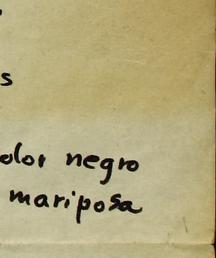 s
olor negro
mariposa